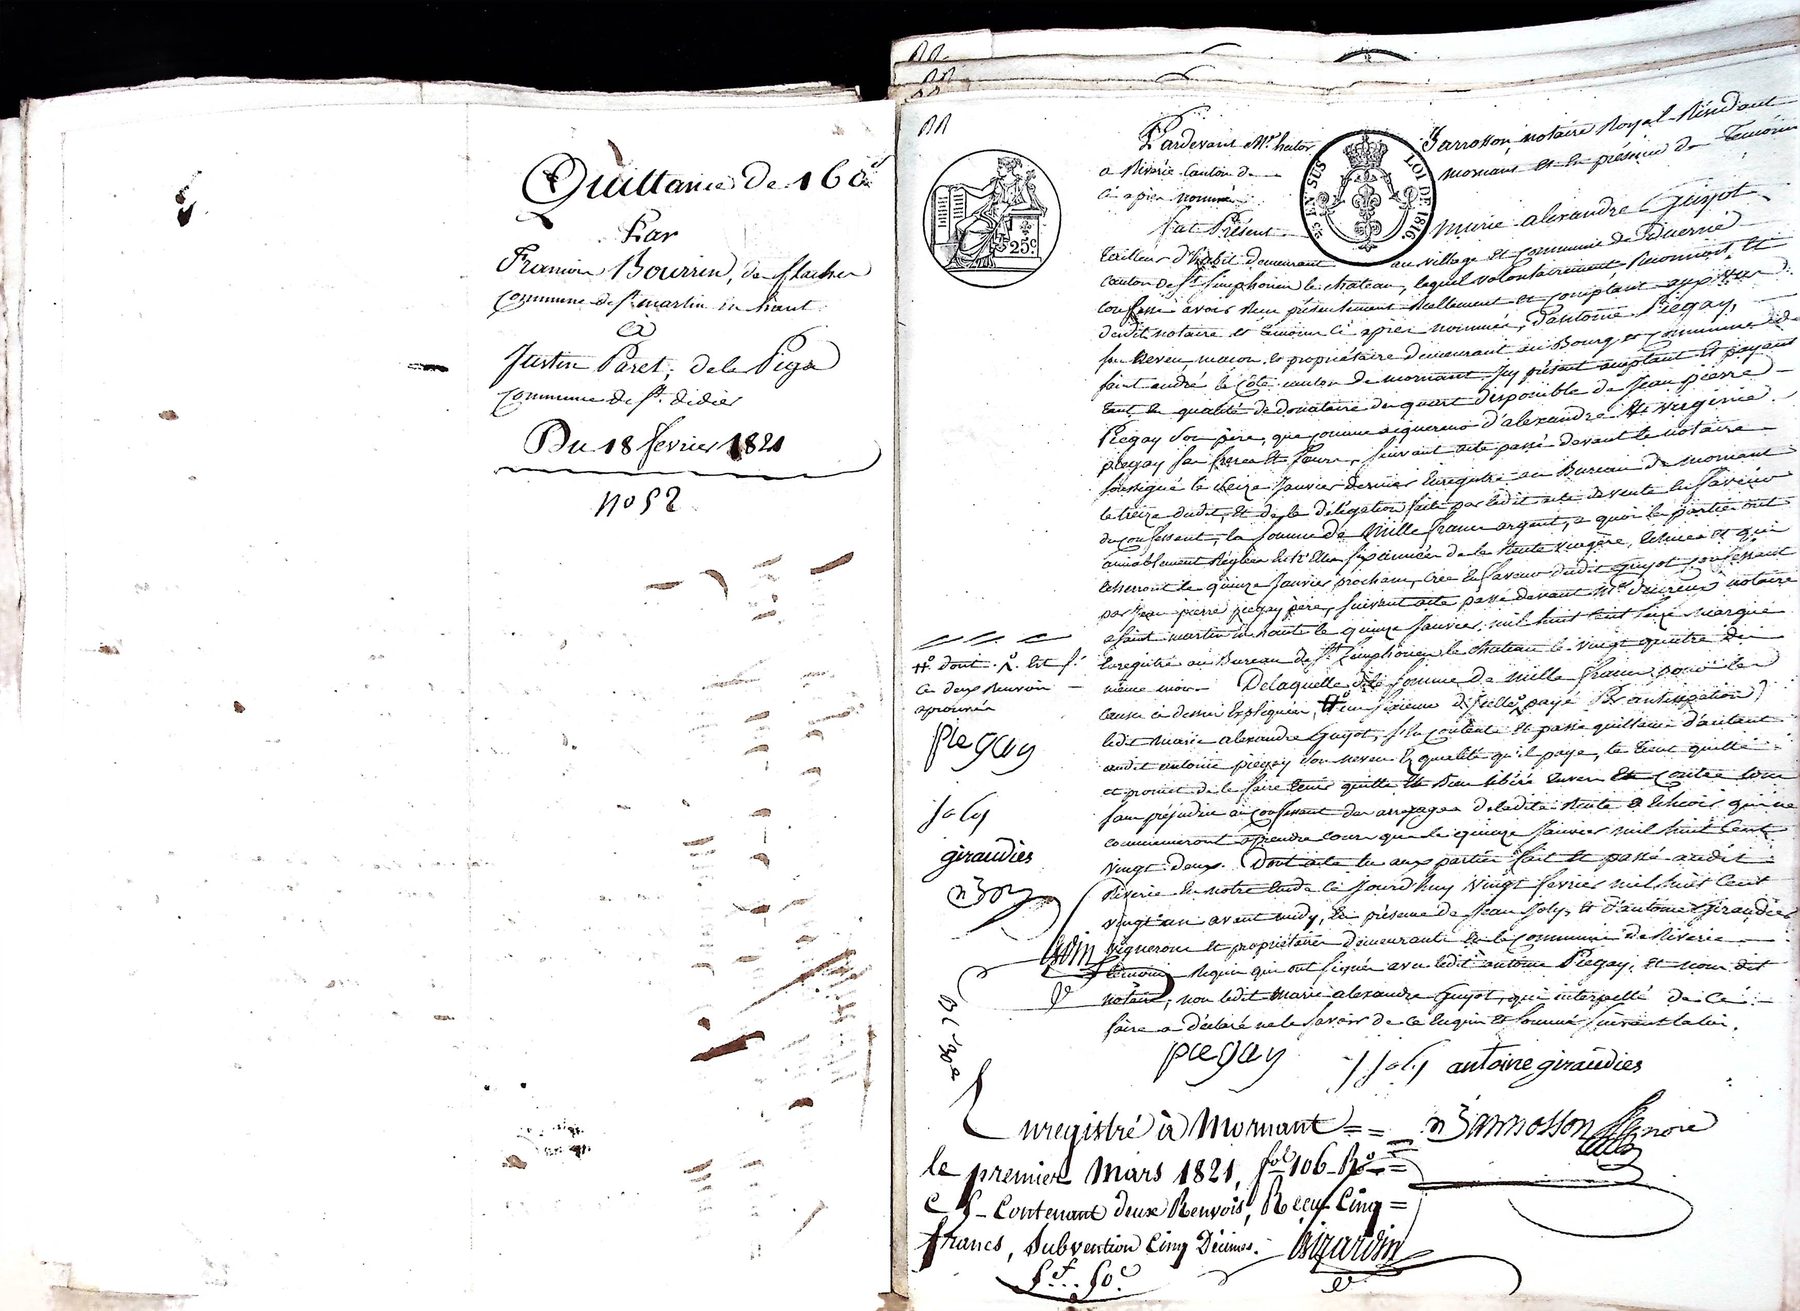 Quittance de 160f
Par
François Bourrin, de flacher
commune de st martin en haut
à
Justin Paret, de la Piga
commune de st. didier
Du 18 fevrier 1821
no 52
Pardevant Me hector Jarrosson, notaire Royal Résidant
a Riverie canton de mornant et en présence de Temoins
ci après nommés
fut Présent marie alexandre Guyot
tailleur d'habit demeurant au village et commune de Duerne
canton de st simphorien le chateau, lequel volontairement Reconnoit et
confesse avoir Reçu présentement Reellement et comptant aux vue
dudit notaire et temoins ci après nommés, d'antoine Piegay,
son Neveu, macon, et propriétaire demeurant au Bourg et commune de
saint andré la côte canton de mornant, icy présent acceptant et payant
tant en qualité de donataire du quart disponible de Jean pierre
Piegay son père, que comme acquereur d'alexandre et virginie
piegay ses frere et soeur, suivant acte passé devant le notaire
soussigné le Janvier dernier Enregistré au Bureau de mornant
le treize dudit, et de la délégation faite par ledit acte de vente en faveur
du confessant, la somme de mille francs argent, a quoi les parties ont
amiablement Réglées entr'Elles de la Rente viagère, échues et qui
echerront le quinze Janvier prochain, crée en faveur dudit Guyot confessant
par Jean pierre piegay père, suivant acte passé devant Me notaire
a saint martin en haut le quinze Janvier mil huit cent seize
Enregistré au Bureau de st Simphorien le chateau le vingt quatre du
même mois. De laquelle dite somme de mille francs pour les
causes ci dessus Expliquées, payé Par anticipation
ledit marie alexandre Guyot, s'en contente et passe quittance d'autant
audit antoine piegay son neveu En qualité qu'il paye, le tient quitte
et promet de le faire tenir quitte et bien libéré envers et contre tous
sans préjudice au confessant des arrerages de ladite Rente a echeoir qui ne
commenceront a prendre cours que le quinze Janvier mil huit cent
vingt deux. Dont acte lu aux parties fait et passé audit
Riverie en notre Etude ce Jourd'huy vingt fevrier mil huit cent
vingt un avant midy, En présence de Jean Joly, et d'antoine Giraudier
vignerons et propriétaires demeurants en la commune de Riverie
temoins Requis qui ont signés avec ledit antoine Piegay, et nous dit
notaire, non ledit marie alexandre Guyot, qui interpellé de ce
faire a déclaré ne le savoir de ce Enquis et sommé suivant la loi.
dont
ce deux Renvois
aprouvés
piegay
joly
giraudies
piegay
J Joly antoine giraudies
n Jarrosson
Enregistré à Mornant
le premier Mars 1821, fol 106 Ro
C 5 Contenant deux Renvois, Recu Cinq
francs, Subvention Cinq Décimes.
Girardin
5f. 50c
25c.
25 C. EN SUS
LOI DE 1816.